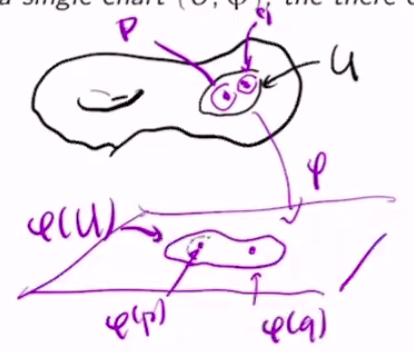 a single chart (U, φ), the there
p
q
U
φ
φ(U)
φ(p)
φ(q)